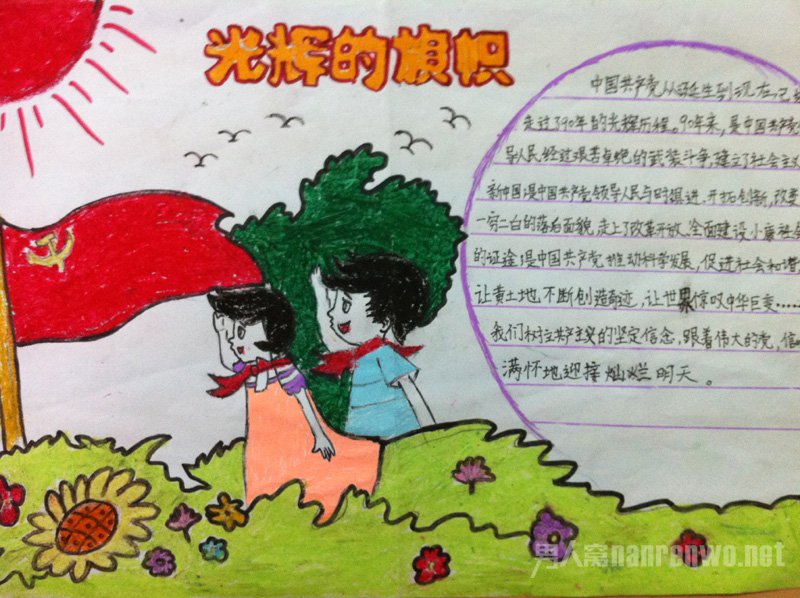 光辉的旗帜
中国共产党从诞生到现在已
走过了90年的光辉历程。90年来，是中国共产党
导人民经过艰苦卓绝的武装斗争，建立了社会主
新中国；是中国共产党领导人民与时俱进、开拓创新，改变
一穷二白的落后面貌，走上了改革开放、全面建设小康社会
的征途；是中国共产党推动科学发展，促进社会和谐
让黄土地不断创造奇迹，让世界惊叹中华巨变……
我们树立共产主义的坚定信念，跟着伟大的党，信
满怀地迎接灿烂明天。
男人窝nanrenwo.net